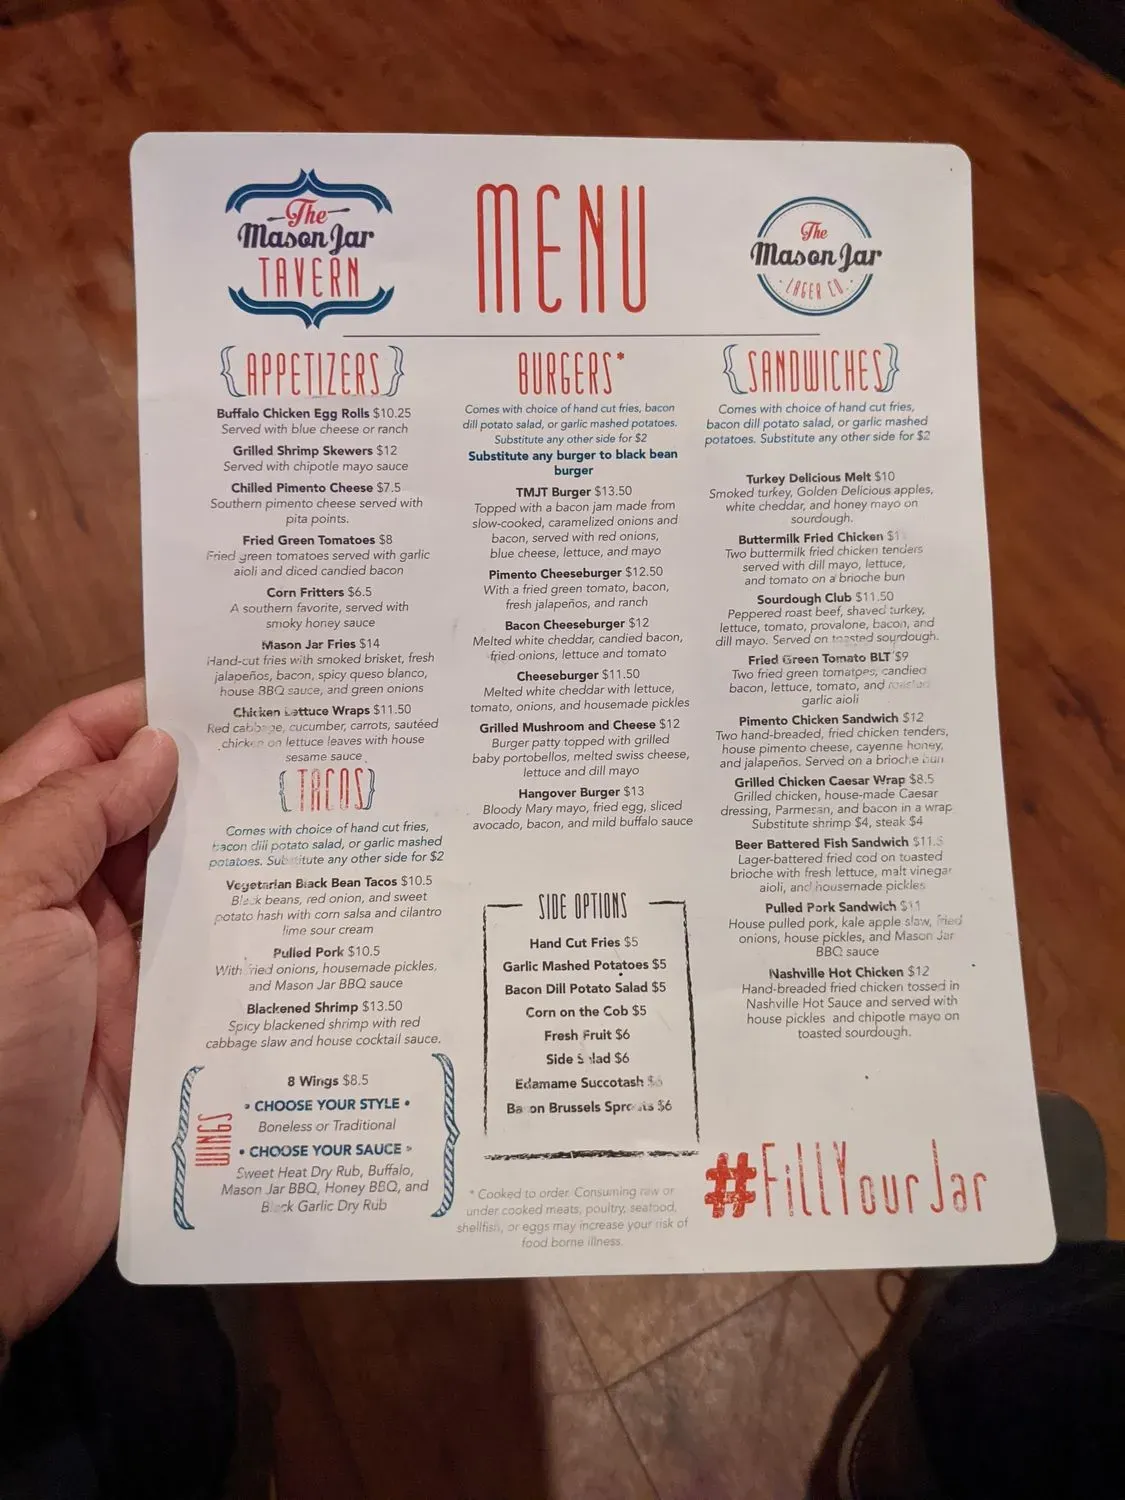 The
Mason Jar
TAVERN
MENU
The
Mason Jar
LAGER CO.
APPETIZERS
Buffalo Chicken Egg Rolls $10.25
Served with blue cheese or ranch
Grilled Shrimp Skewers $12
Served with chipotle mayo sauce
Chilled Pimento Cheese $7.5
Southern pimento cheese served with
pita points.
Fried Green Tomatoes $8
Fried green tomatoes served with garlic
aioli and diced candied bacon
Corn Fritters $6.5
A southern favorite, served with
smoky honey sauce
Mason Jar Fries $14
Hand-cut fries with smoked brisket, fresh
jalapeños, bacon, spicy queso blanco,
house BBQ sauce, and green onions
Chicken Lettuce Wraps $11.50
Red cabbage, cucumber, carrots, sautéed
chicken on lettuce leaves with house
sesame sauce
TACOS
Comes with choice of hand cut fries,
bacon dill potato salad, or garlic mashed
potatoes. Substitute any other side for $2
Vegetarian Black Bean Tacos $10.5
Black beans, red onion, and sweet
potato hash with corn salsa and cilantro
lime sour cream
Pulled Pork $10.5
With fried onions, housemade pickles,
and Mason Jar BBQ sauce
Blackened Shrimp $13.50
Spicy blackened shrimp with red
cabbage slaw and house cocktail sauce.
WINGS
8 Wings $8.5
• CHOOSE YOUR STYLE •
Boneless or Traditional
• CHOOSE YOUR SAUCE •
Sweet Heat Dry Rub, Buffalo,
Mason Jar BBQ, Honey BBQ, and
Black Garlic Dry Rub
BURGERS*
Comes with choice of hand cut fries, bacon
dill potato salad, or garlic mashed potatoes.
Substitute any other side for $2
Substitute any burger to black bean
burger
TMJT Burger $13.50
Topped with a bacon jam made from
slow-cooked, caramelized onions and
bacon, served with red onions,
blue cheese, lettuce, and mayo
Pimento Cheeseburger $12.50
With a fried green tomato, bacon,
fresh jalapeños, and ranch
Bacon Cheeseburger $12
Melted white cheddar, candied bacon,
fried onions, lettuce and tomato
Cheeseburger $11.50
Melted white cheddar with lettuce,
tomato, onions, and housemade pickles
Grilled Mushroom and Cheese $12
Burger patty topped with grilled
baby portobellos, melted swiss cheese,
lettuce and dill mayo
Hangover Burger $13
Bloody Mary mayo, fried egg, sliced
avocado, bacon, and mild buffalo sauce
SIDE OPTIONS
Hand Cut Fries $5
Garlic Mashed Potatoes $5
Bacon Dill Potato Salad $5
Corn on the Cob $5
Fresh Fruit $6
Side Salad $6
Edamame Succotash
Bacon Brussels Sprouts $6
* Cooked to order. Consuming raw or
under cooked meats, poultry, seafood,
shellfish, or eggs may increase your risk of
food borne illness.
SANDWICHES
Comes with choice of hand cut fries,
bacon dill potato salad, or garlic mashed
potatoes. Substitute any other side for $2
Turkey Delicious Melt $10
Smoked turkey, Golden Delicious apples,
white cheddar, and honey mayo on
sourdough.
Buttermilk Fried Chicken
Two buttermilk fried chicken tenders
served with dill mayo, lettuce,
and tomato on a brioche bun
Sourdough Club $11.50
Peppered roast beef, shaved turkey,
lettuce, tomato, provalone, bacon, and
dill mayo. Served on toasted sourdough.
Fried Green Tomato BLT $9
Two fried green tomatoes, candied
bacon, lettuce, tomato, and roasted
garlic aioli
Pimento Chicken Sandwich $12
Two hand-breaded, fried chicken tenders,
house pimento cheese, cayenne honey,
and jalapeños. Served on a brioche bun
Grilled Chicken Caesar Wrap $8.5
Grilled chicken, house-made Caesar
dressing, Parmesan, and bacon in a wrap
Substitute shrimp $4, steak $4
Beer Battered Fish Sandwich $11.5
Lager-battered fried cod on toasted
brioche with fresh lettuce, malt vinegar
aioli, and housemade pickles
Pulled Pork Sandwich $11
House pulled pork, kale apple slaw, fried
onions, house pickles, and Mason Jar
BBQ sauce
Nashville Hot Chicken $12
Hand-breaded fried chicken tossed in
Nashville Hot Sauce and served with
house pickles and chipotle mayo on
toasted sourdough.
#FillYourJar